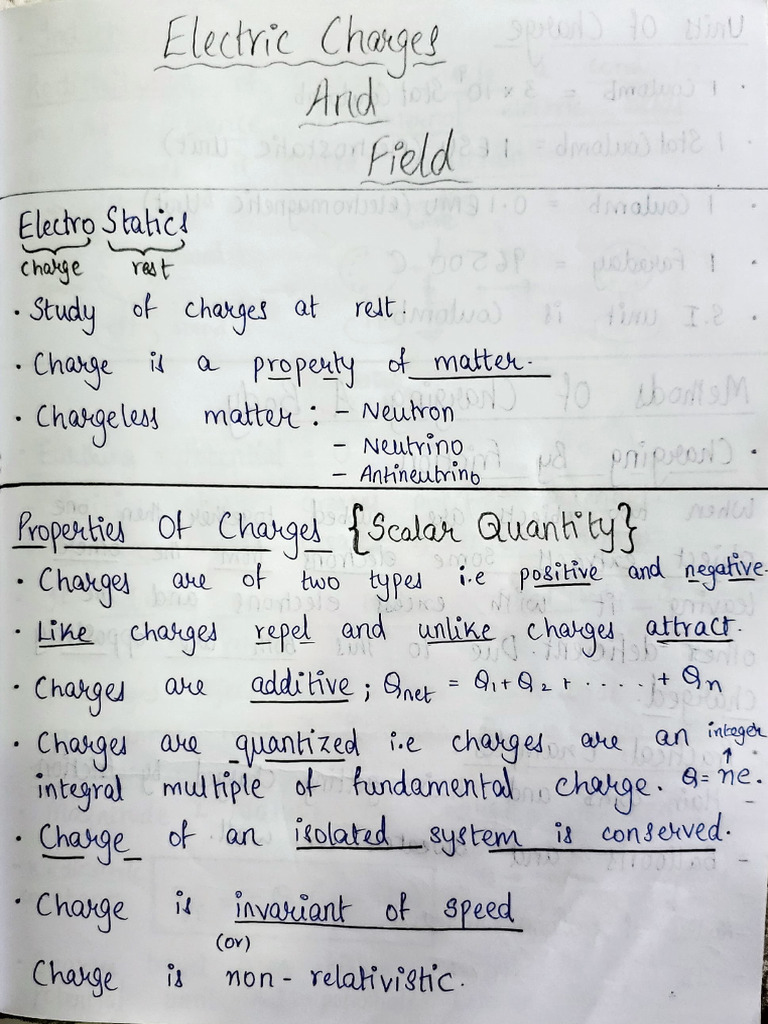 Electric Charges
And
Field
Electro Statics
charge rest
· Study of charges at rest.
· Charge is a property of matter.
· Chargeless matter : - Neutron
- Neutrino
- Antineutrino
Properties Of Charges {Scalar Quantity}
· Charges are of two types i.e positive and negative.
· Like charges repel and unlike charges attract.
· Charges are additive ; Qnet = Q1 + Q2 + ..... + Qn
· Charges are quantized i.e charges are an integer
integral multiple of fundamental charge. Q = ne.
· Charge of an isolated system is conserved.
· Charge is invariant of speed
(or)
Charge is non-relativistic.